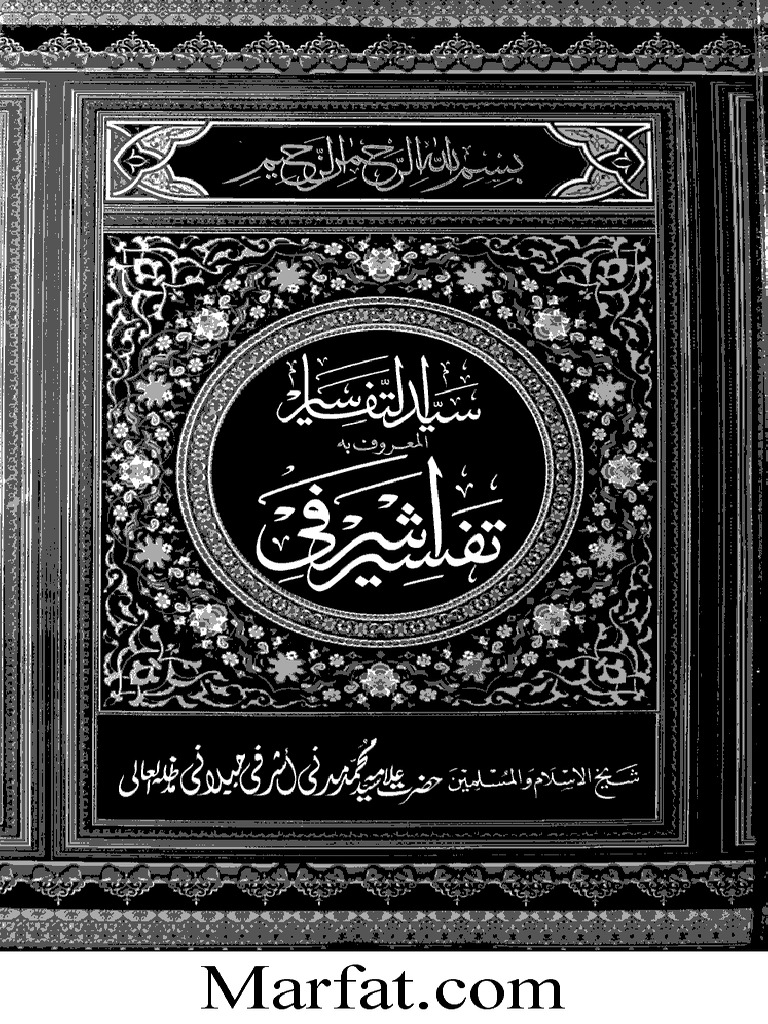 بسم الله الرحمن الرحيم
سيد التفاسير
المعروف به
تفسیر اشرفی
شیخ الاسلام والمسلمین حضرت علامہ سید محمد مدنی اشرفی جیلانی مدظلہ العالی
Marfat.com